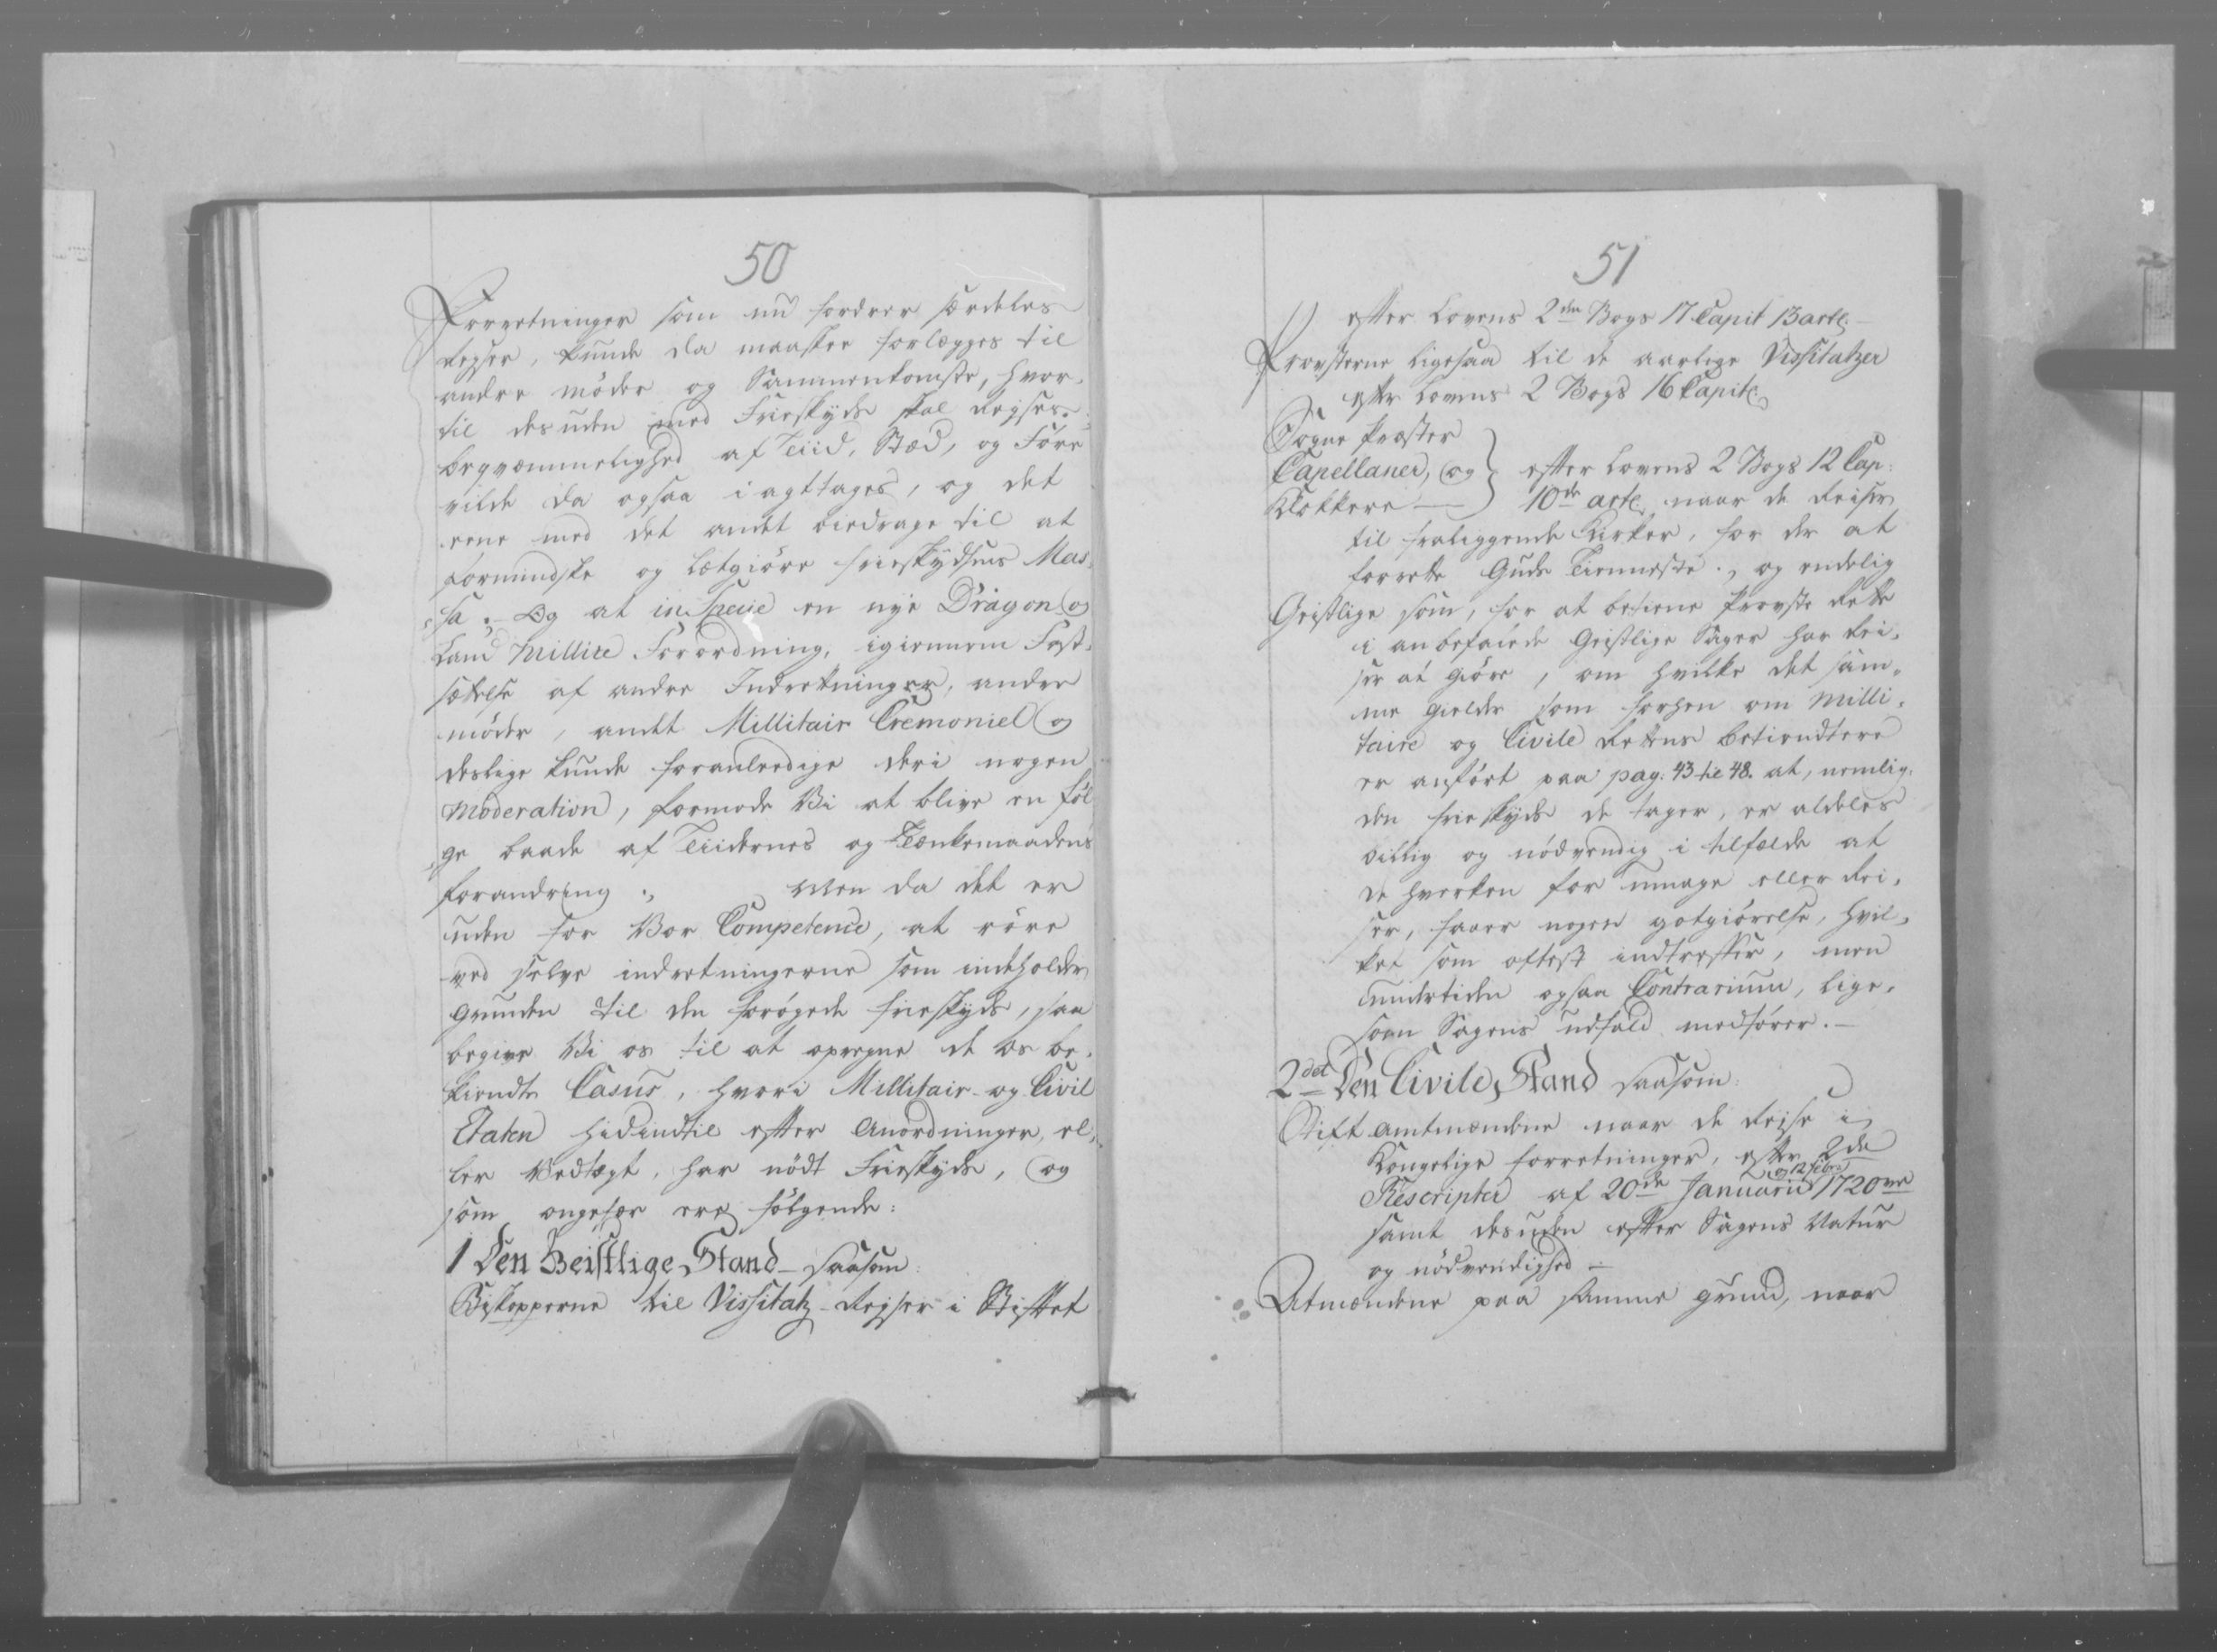 50
Forretninger som nu fordrer særdeles
Reyser, kunde da maaskee forlægges til
andre möder og Sammenkomster, hvor-
til desuden med Frieskyds skal Reyses.
beqvæmmelighed af Tiid, Stæd, og Före
vilde da ogsaa iagttages, og det
eene med det andet biedrage til at
formindske og letgiöre frieskydsens Mas-
sa. – Og at in Specie en nye Dragon og
Land Millice Forordning, igiennem Fast-
sættelse af andre Indretninger, andre
möder, andet Millitair Cremoniel og
deslige kunde foranleedige deri nogen
Moderation, formode Vi at blive en föl-
ge baade af Tiidernes og Tænkemaadens
forandring. Men da det er
uden for Vor Competence, at röre
ved selve indretningerne som indeholder
grunden til den forögede frieskyds, saa
begive Vi os til at opregne de os be-
kiendte Casus, hvori Millitair- og Civil
Etaten hidindtil efter Anordninger, el-
ler Vedtægt, har nödt Frieskyds, og
som ongefær ere fölgende:
1 Den Geistlige Stand – saasom
Biskopperne til Vissitatz-Reyser i Stiftet
51
efter Lovens 2den Bogs 17 Capit 13 artc.
Provsterne ligesaa til de aarlige Vissitatzer
efter Lovens 2 Bogs 16 Capitc
Sogne Præster
Capellaner, og } efter Lovens 2 Bogs 12 Cap:
Klokkere — 10de artc, naar de Reiser
til fraliggende Kirker, for der at
forrette Guds Tienneste., og endelig
Geistlige som, for at betiene Provste Rette
i anbefalede Geistlige Sager har Rei-
ser at giöre, om hvilke det sam-
me gielder som forhen om Milli-
taire og Civile Rettens betiendtere
er anfört paa pag: 43 til 48. at, nemlig
den frieskyds de tager, er aldeles
billig og nödvendig i tilfælde at
de hverken for umage eller Rei-
ser, faaer nogen godtgiörelse, hvil-
ket som oftest indtreffer, men
undertiden ogsaa Contrarium, lige-
som Sagens udfald medförer. —
2det Den Civile Stand saasom
Stift Amtmændene naar de Reise i
Kongelige forretninger, efter 2de
Rescripter af 20de Januarii og 12 Febr: 1720ve
samt desuden efter Sagens Natur
og nödvendighed —
Amtmændene paa samme grund, naar